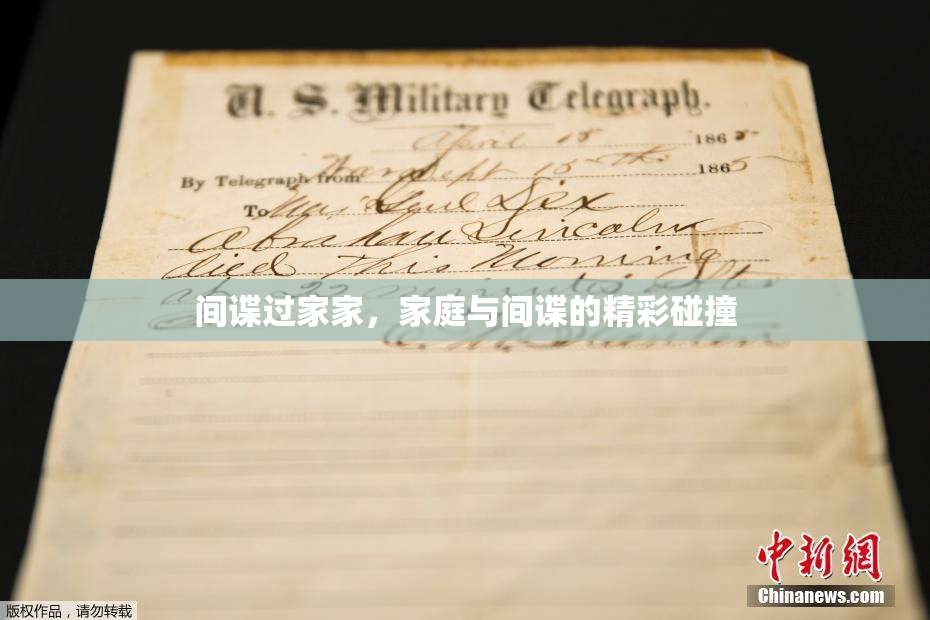 U. S. Military Telegraph.
April 15 1865
By Telegraph from War Dept 15th 1865
To Maj Genl Dix
Abraham Lincoln
died This Morning
at 22 minutes after
间谍过家家，家庭与间谍的精彩碰撞
中新网
Chinanews.com
版权作品，请勿转载